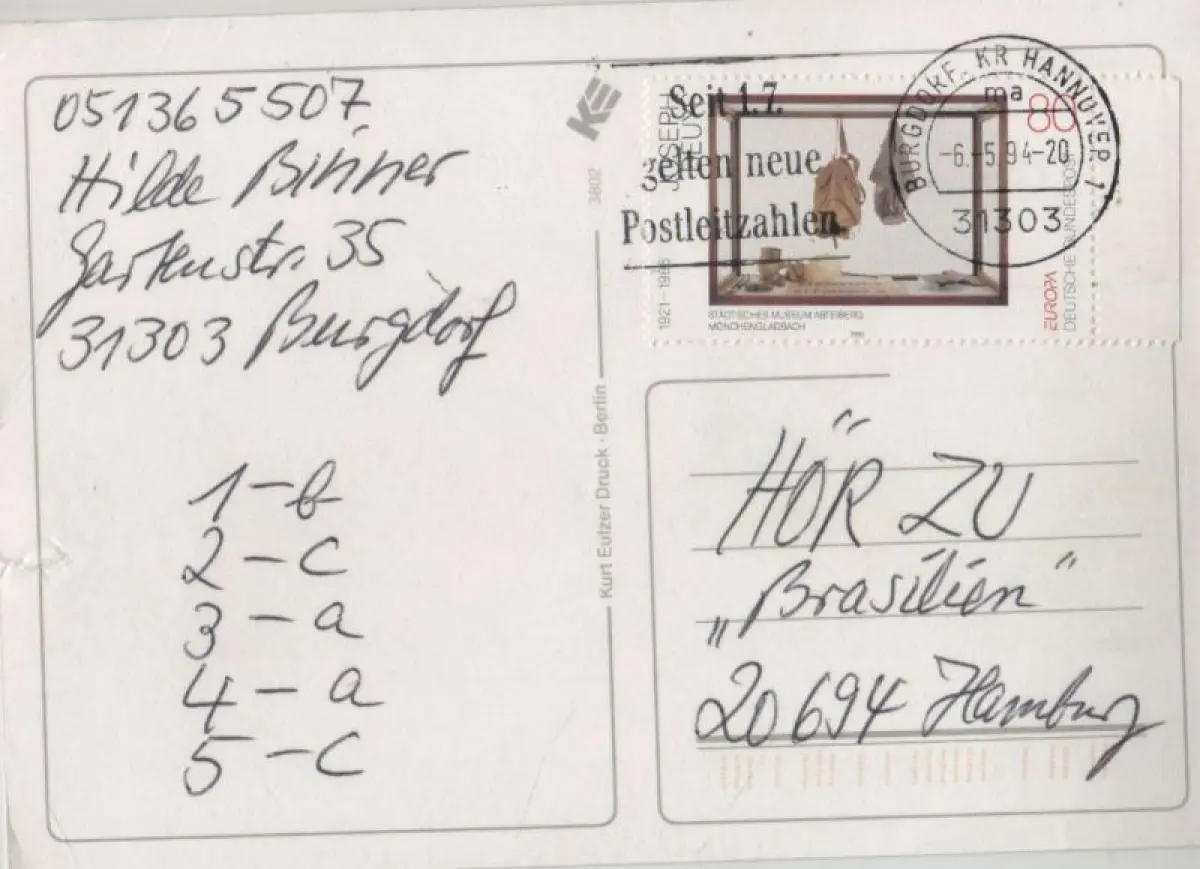 051365507
Hilde Binner
Gartenstr. 35
31303 Burgdorf
1-b
2-c
3-a
4-a
5-c
KE
3802
Kurt Eulzer Druck · Berlin
Seit 1.7.
gelten neue
Postleitzahlen
JOSEPH
BEUYS
1921-1986
STÄDTISCHES MUSEUM ABTEIBERG
MÖNCHENGLADBACH
80
EUROPA
DEUTSCHE BUNDESPOST
BURGDORF, KR HANNOVER 1
ma
-6.-5.94-20
31303
HÖR ZU
„Brasilien“
20694 Hamburg